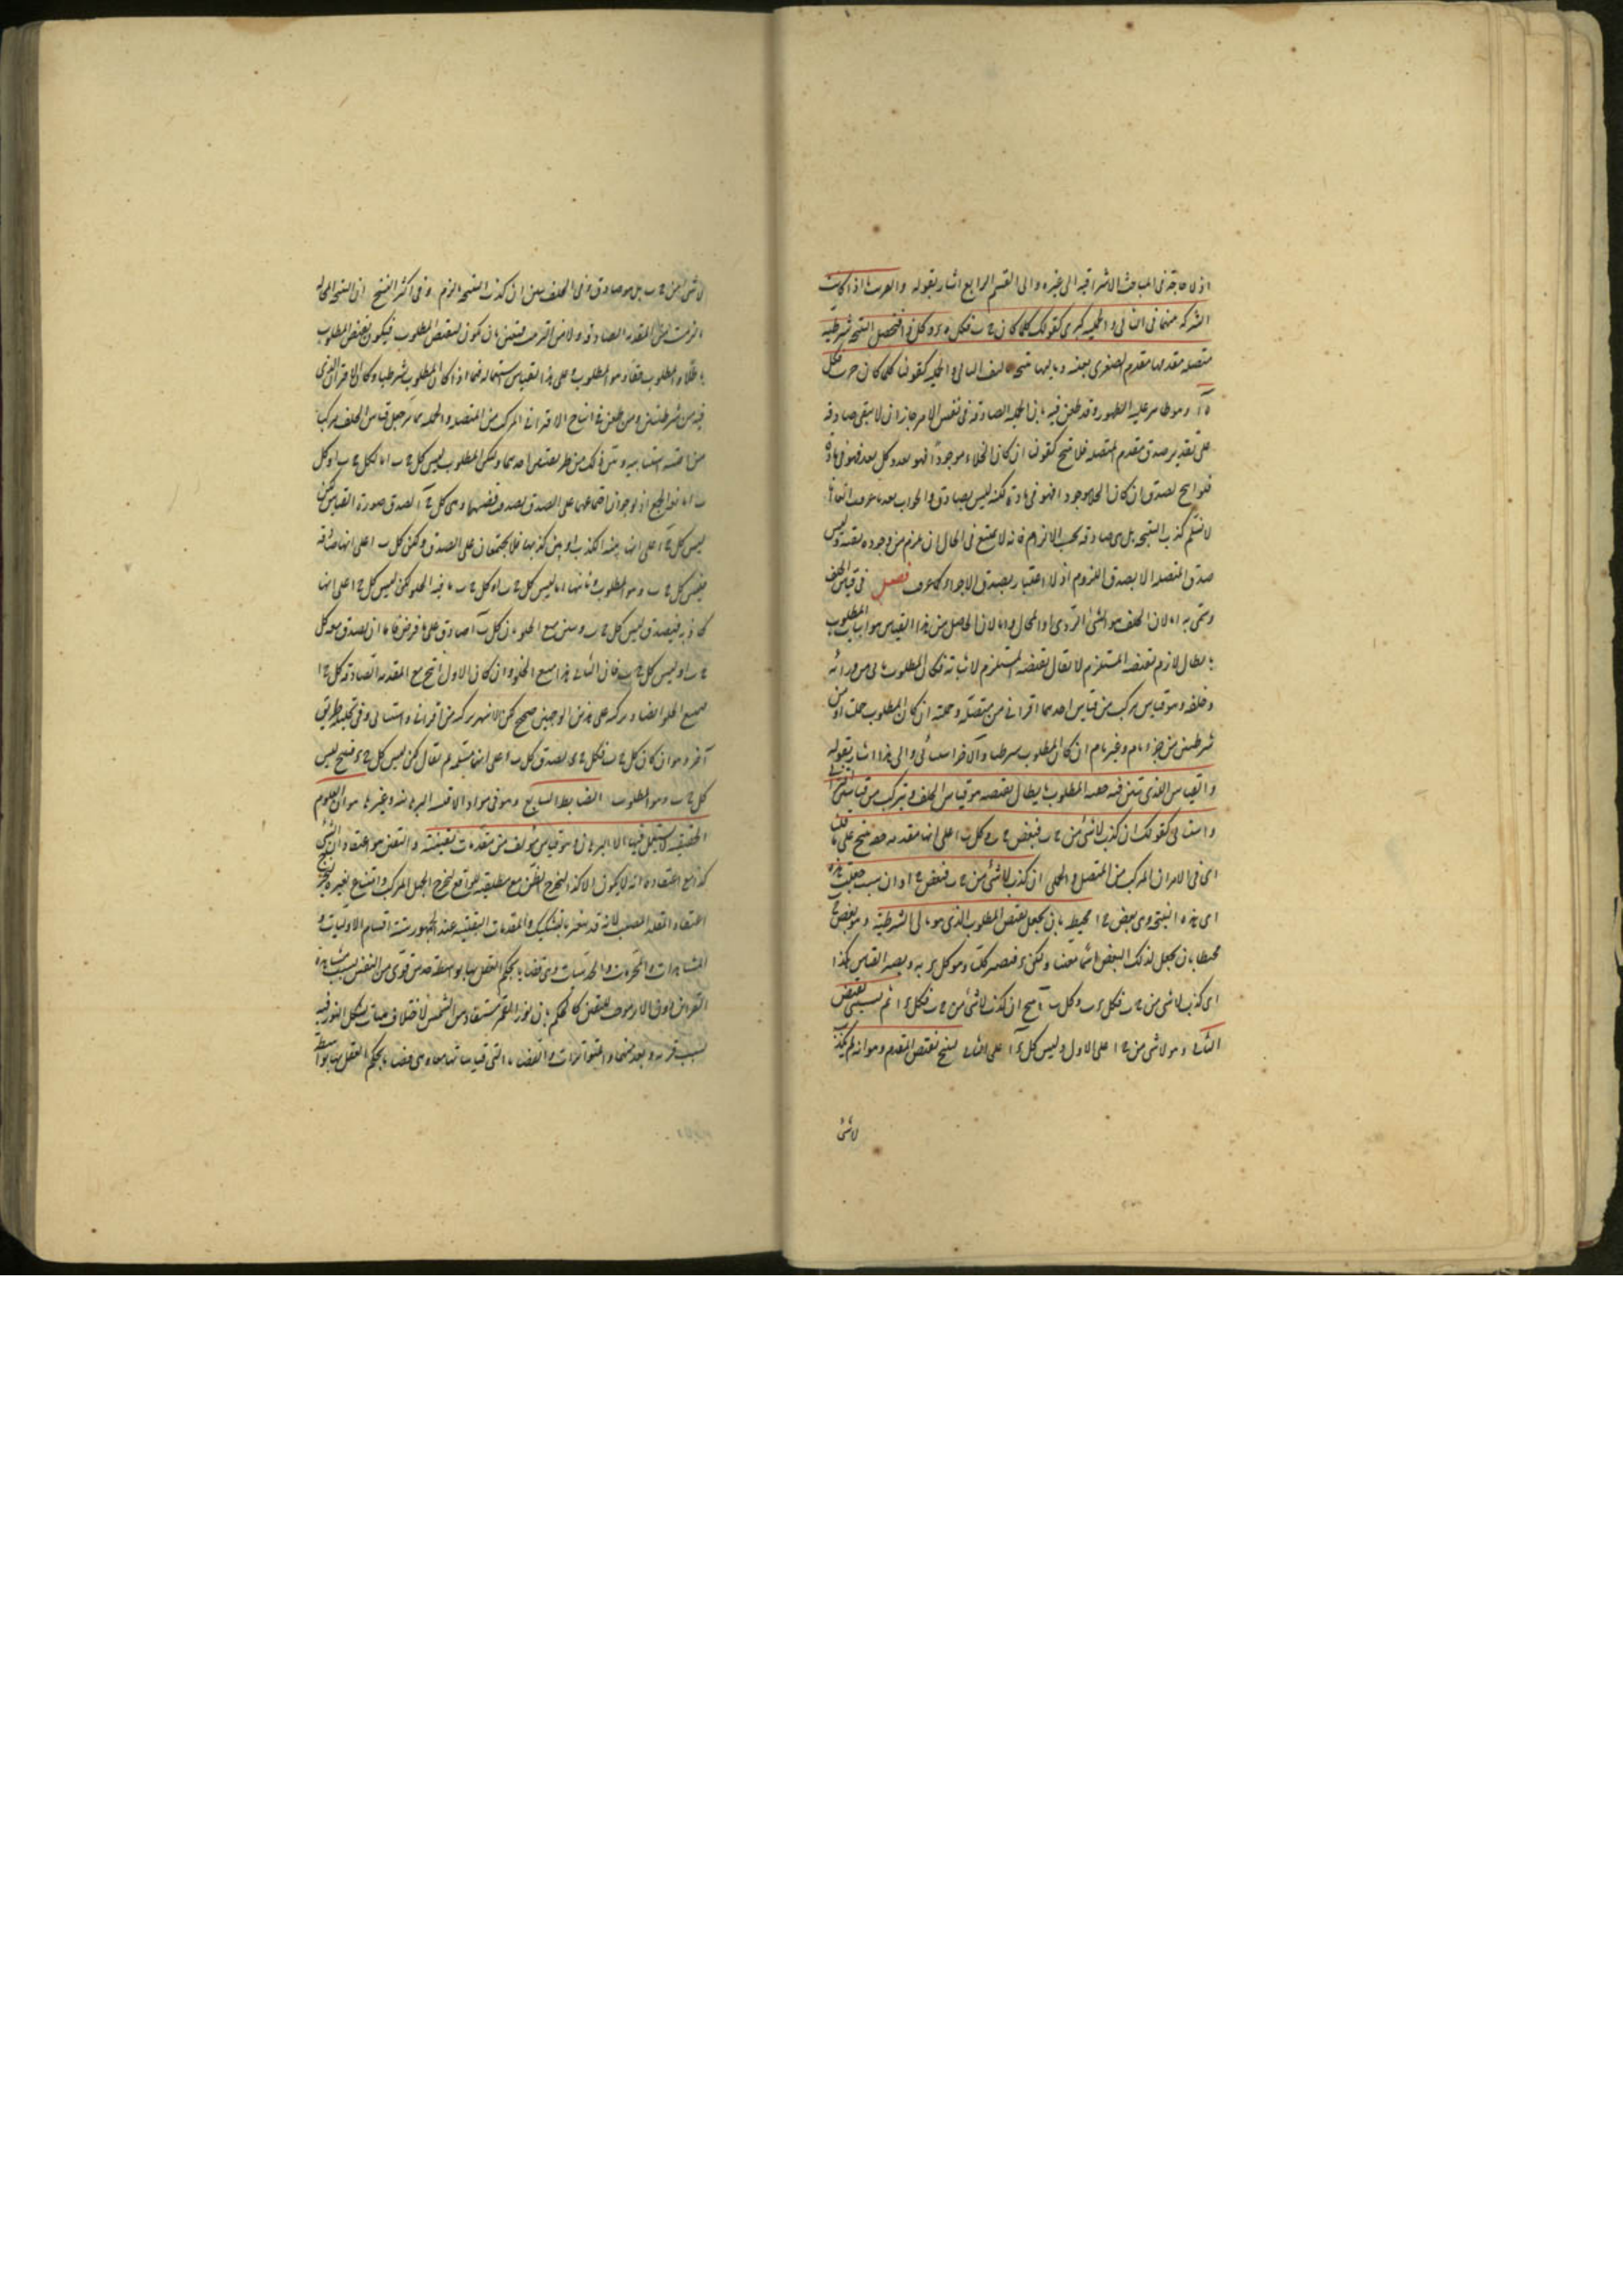 اذ لا حاجة فى المباحث الاشراقيه الى غيره والى القسم الرابع اشار بقوله والعرب اذا كانت
الشركه منهما فى التالى والحمليه كبرى كقولك كلما كان ج ب فكل ه د وكل د ا فتحصل النتيجه شرطيه
متصله مقدمها مقدم الصغرى بعينه وتاليها نتيجه تاليف التالى والحمليه كقولنا كلما كان ج ب فكل
ه ا وهو ظاهر عليه الظهور وقد طعن فيه بان الحمليه الصادقه فى نفس الامر جاز ان لا تبقى صادقه
على تقدير صدق مقدم المتصله فلا ينتج كقولنا ان كان الخلاء موجودًا فهو بعد وكل بعد فهو فى مادة
فلو انتج لصدق ان كان الخلا موجودا فهو فى مادة لكنه ليس بصادق والجواب بعد ما عرفت
لا نسلم كذب النتيجه بل هى صادقه بحسب الالزام فانه لا يمتنع فى المحال ان يلزم من وجوده نقيضه وليس
صدق المتصله الا بصدق اللزوم اذ لا اعتبار بصدق الاجزاء كما عرفت فصل فى قياس الخلف
وسمى به اما لان الخلف هو الشئ الردى او المحال واما لان الحاصل من هذا القياس هو اثبات المطلوب
بابطال لازم نقيضه المستلزم لابطال نقيضه المستلزم لاثباته فكان المطلوب ياتى من ورائه
وخلفه وهو قياس مركب من قياس احدهما اقترانى من متصله وحمليه ان كان المطلوب حمليا او من
شرطيتين من جزء تام وغير تام ان كان المطلوب شرطيا والآخر استثنائى والى هذا اشار بقوله
والقياس الذى تبين فيه حقيه المطلوب بابطال نقيضه هو قياس الخلف ويتركب من قياسين اقترانى
واستثنائى كقولك ان كذب لا شئ من ج ب فبعض ج ب وكل ب ا على انها مقدمه حقه ينتج على ما قلنا
اى فى الاقترانى المركب من المتصل والحملى ان كذب لا شئ من ج ب فبعض ج ا وان شئت جعلت هذه
اى هذه النتيجه وهى بعض ج ا محيطه بان تجعل نقيض المطلوب الذى هو تالى الشرطية وهو بعض ج ب
محيطا بان تجعل لذلك البعض اسما معينا وليكن د فتصير كليه وهو كل د ب ويصير القياس هكذا
اى كذب لا شئ من ج ب فكل د ب وكل ب ا ينتج ان كذب لا شئ من ج ب فكل د ا ثم يستثنى نقيض
التالى وهو لا شئ من ج ا على الاول وليس كل د ا على الثانى ينتج نقيض المقدم وهو انه لم يكذب
لا شئ
لا شئ من ج ب بل هو صادق وفى الخلف تبين ان كذب النتيجه الزم وفى اكثر النسخ ان النتيجه المحاله
ما لزمت من المقدمه الصادقه ولا من الترتيب فتعين ان تكون لنقيض المطلوب فيكون نقيض المطلوب
باطلا والمطلوب حقا وهو المطلوب وعلى هذا القياس استعماله فيما اذا كان المطلوب شرطيا وكان الاقترانى الذى
فيه من شرطيتين ومن طعن فى انتاج الاقترانى المركب من المتصله والحمليه جعل قياس الخلف مركبا
من اقيسه استثنائيه وبين ذلك من طريقتين احدهما وليكن المطلوب ليس كل ج ب اما لكل ج ب او كل
ب ا مانعه الجمع اذ لو جوزنا اجتماعهما على الصدق لصدق نقيضها وهى كل ج ا لصدق صورة القياس لكن
ليس كل ج ا على انها بينه الكذب او بين كذبها فلا يجتمعان على الصدق ولكن كل ب ا على انها صادقه
فليس كل ج ب وهو المطلوب وثانيهما اما ليس كل ج ب او كل ج ب مانعه الخلو لكن ليس كل ج ا على انها
كاذبه فيصدق ليس كل ج ب وبين منع الخلو بان كل ب ا صادق على ما فرض فاما ان يصدق معه كل
ج ب او ليس كل ج ب فان كان الثانى فهذا منع الخلو وان كان الاول انتج مع المقدمه الصادقه كل ج ا
فمنع الخلو ايضا وتركبه على هذين الوجهين صحيح لكن الاشهر تركبه من اقترانى واستثنائى وفى تحليله طريق
آخر وهو ان كان كل ج ب فكل ج د لصدق كل ب د على انها مسلمه ثم يقال لكن ليس كل ج د فينتج ليس
كل ج ب وهو المطلوب الضابط السابع وهو فى مواد الاقيسه البرهانيه وغيرها هو ان العلوم
الحقيقيه لا يستعمل فيها الا البرهان وهو قياس مؤلف من مقدمات يقينيه واليقين هو اعتقاد ان الشئ
كذا مع اعتقاد انه لا يكون الا كذا ليخرج الظن مع مطابقته للواقع ليخرج الجهل المركب وامتناع تغيره ليخرج
اعتقاد المقلد المصيب لانه قد يتغير بالتشكيك والمقدمات اليقينيه عند الجمهور ستة اقسام الاوليات و
المشاهدات والمجربات والحدسيات وهى قضايا يحكم العقل بها بواسطة حدس قوى من النفس بسبب مشاهدة
القرائن دون الامر موجب لليقين كالحكم بان نور القمر مستفاد من الشمس لاختلاف هيئات تشكل النور فيه
بسبب قربه وبعده منها والمتواترات والقضايا التى قياساتها معها وهى قضايا يحكم العقل بها بواسطة